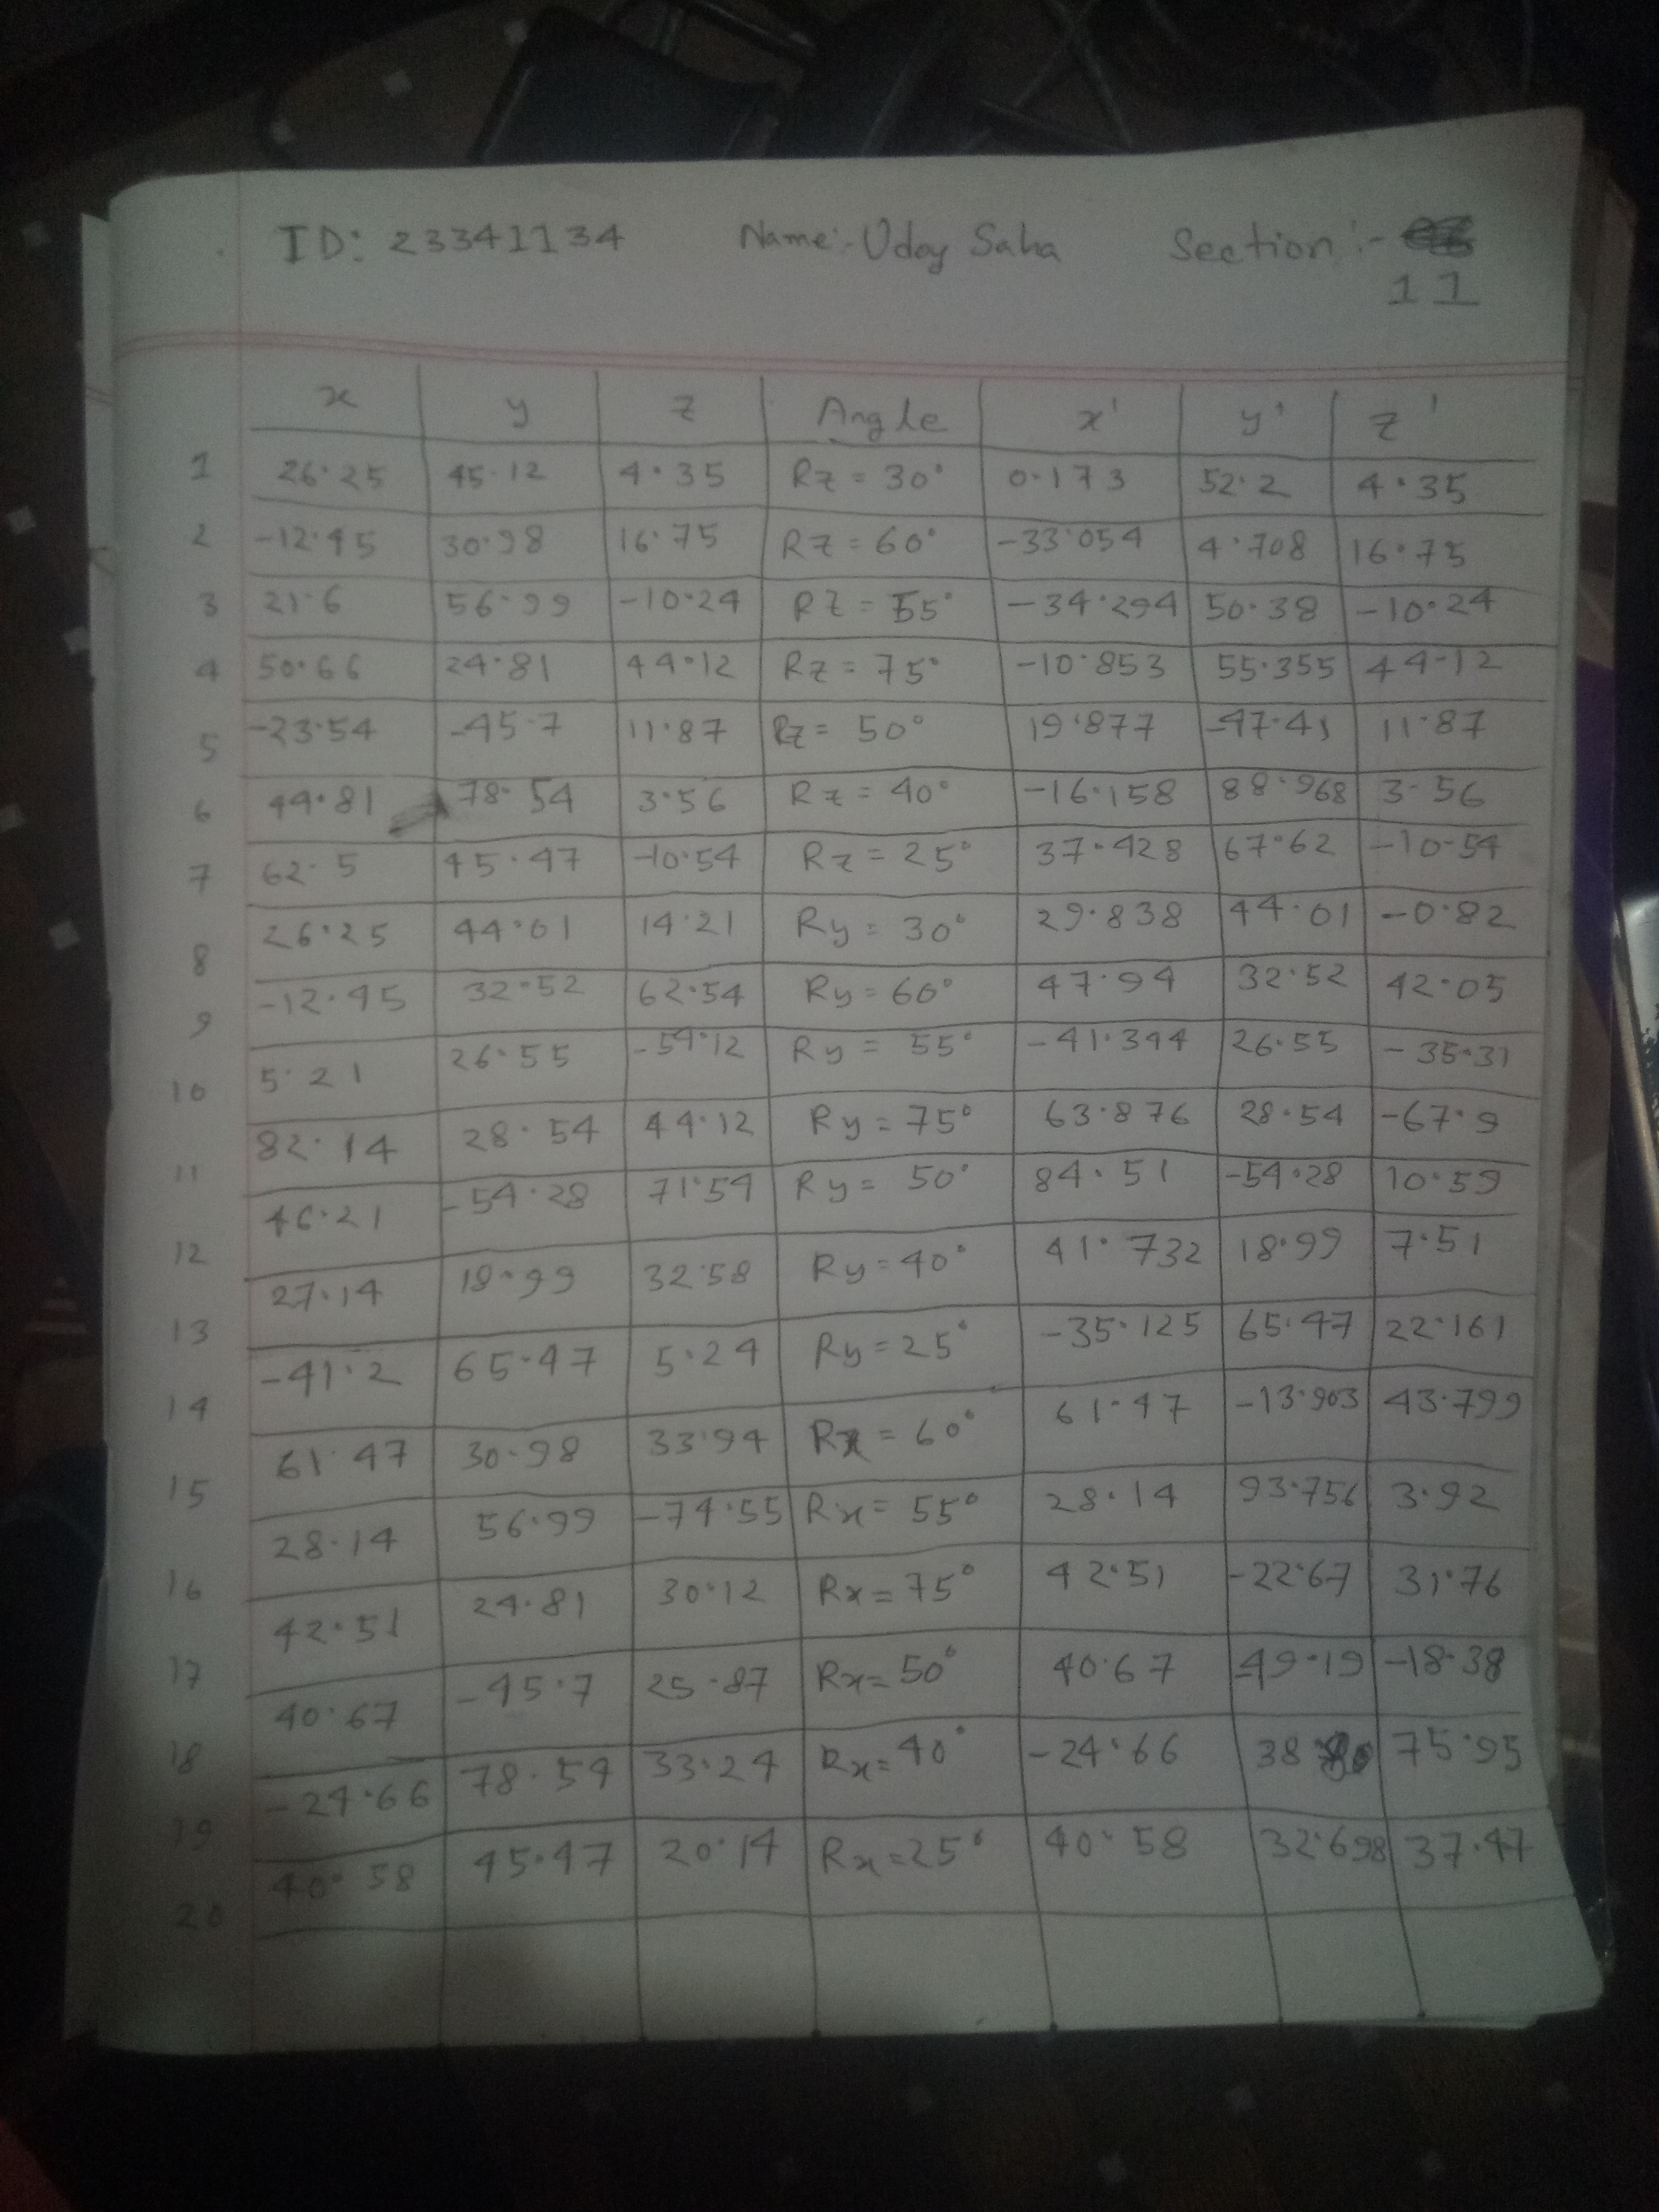 ID: 23341134 Name:- Uday Saha Section:-
11
x y z Angle x' y' z'
1 26.25 45.12 4.35 Rz = 30° 0.173 52.2 4.35
2 -12.45 30.98 16.75 Rz = 60° -33.054 4.708 16.75
3 21.6 56.99 -10.24 Rz = 55° -34.294 50.38 -10.24
4 50.66 24.81 44.12 Rz = 75° -10.853 55.355 44.12
5 -23.54 -45.7 11.87 Rz = 50° 19.877 -47.41 11.87
6 44.81 78.54 3.56 Rz = 40° -16.158 88.968 3.56
7 62.5 45.47 -10.54 Rz = 25° 37.428 67.62 -10.54
8 26.25 44.01 14.21 Ry = 30° 29.838 44.01 -0.82
9 -12.45 32.52 62.54 Ry = 60° 47.94 32.52 42.05
10 5.21 26.55 -54.12 Ry = 55° -41.344 26.55 -35.31
11 82.14 28.54 44.12 Ry = 75° 63.876 28.54 -67.9
12 46.21 -54.28 71.54 Ry = 50° 84.51 -54.28 10.59
13 27.14 18.99 32.58 Ry = 40° 41.732 18.99 7.51
14 -41.2 65.47 5.24 Ry = 25° -35.125 65.47 22.161
15 61.47 30.98 33.94 Rx = 60° 61.47 -13.903 43.799
16 28.14 56.99 -74.55 Rx = 55° 28.14 93.756 3.92
17 42.51 24.81 30.12 Rx = 75° 42.51 -22.67 31.76
18 40.67 -45.7 25.87 Rx = 50° 40.67 -49.19 -18.38
19 -24.66 78.54 33.24 Rx = 40° -24.66 38 75.95
20 40.58 45.47 20.14 Rx = 25° 40.58 32.698 37.47